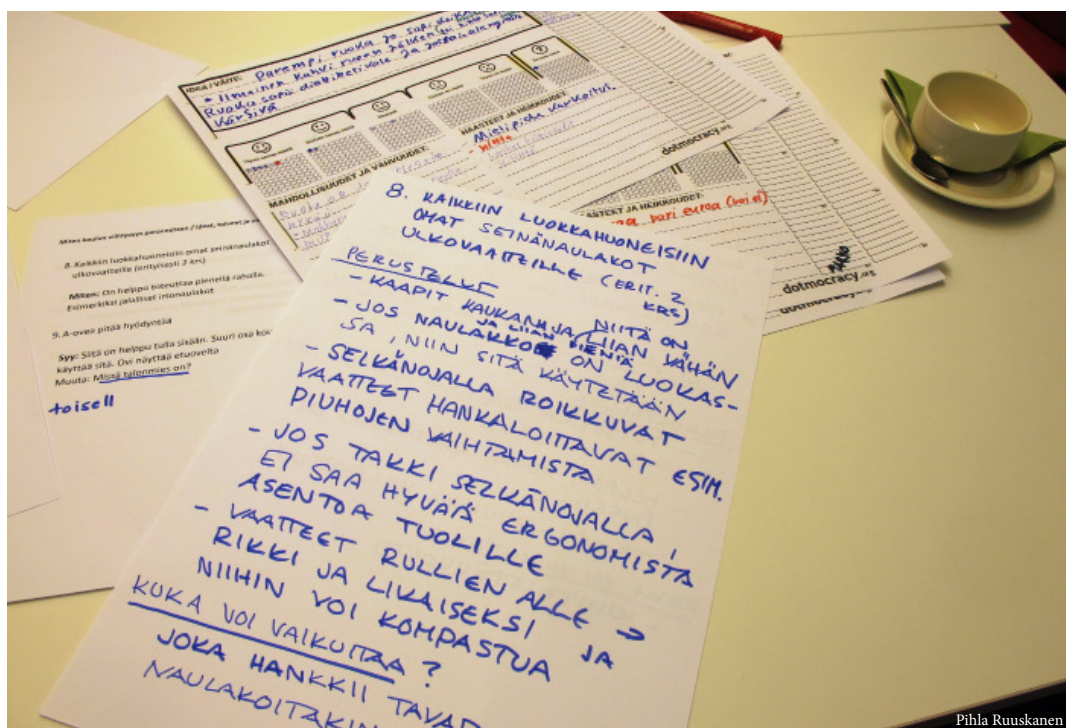 IDEA / VÄITE: Parempi ruoka ja sopi
* Ilmainen kahvi ruoan jälkeen
Ruoka sopii
kärsivä
MAHDOLLISUUDET JA VAHVUUDET:
HAASTEET JA HEIKKOUDET:
Mielipide karkoitus.
- hinta
dotmocracy.org
HAASTEET JA HEIKKOUDET:
pari euroa (voi ei)
dotmocracy.org
8. Kaikkiin luokkahuoneisiin omat seinänaulakot
ulkovaatteille (erityisesti 2 krs)
Miten: On helppo toteuttaa pienellä rahalla.
Esimerkiksi jalalliset irtonaulakot
9. A-ovea pitää hyödyntää
Syy: Siitä on helppo tulla sisään. Suuri osa
käyttää sitä. Ovi näyttää etuovelta
Muuta: Missä talonmies on?
toisell
8. KAIKKIIN LUOKKAHUONEISIIN
OMAT SEINÄNAULAKOT
ULKOVAATTEILLE
(ERIT. 2
KRS)
PERUSTELUT
- KAAPIT KAUKANA JA NIITÄ ON
LIIAN VÄHÄN
JA LIIAN PIENIÄ
- JOS NAULAKKO ON LUOKAS-
SA, NIIN SITÄ KÄYTETÄÄN
- SELKÄNOJALLA ROIKKUVAT
VAATTEET HANKALOITTAVAT ESIM.
PIUHOJEN VAIHTAMISTA
- JOS TAKKI SELKÄNOJALLA,
EI SAA HYVÄÄ ERGONOMISTA
ASENTOA TUOLILLE
- VAATTEET RULLIEN ALLE →
RIKKI JA LIKAISEKSI JA
NIIHIN VOI KOMPASTUA
KUKA VOI VAIKUTTAA?
JOKA HANKKII
NAULAKOITAKIN
Pihla Ruuskanen